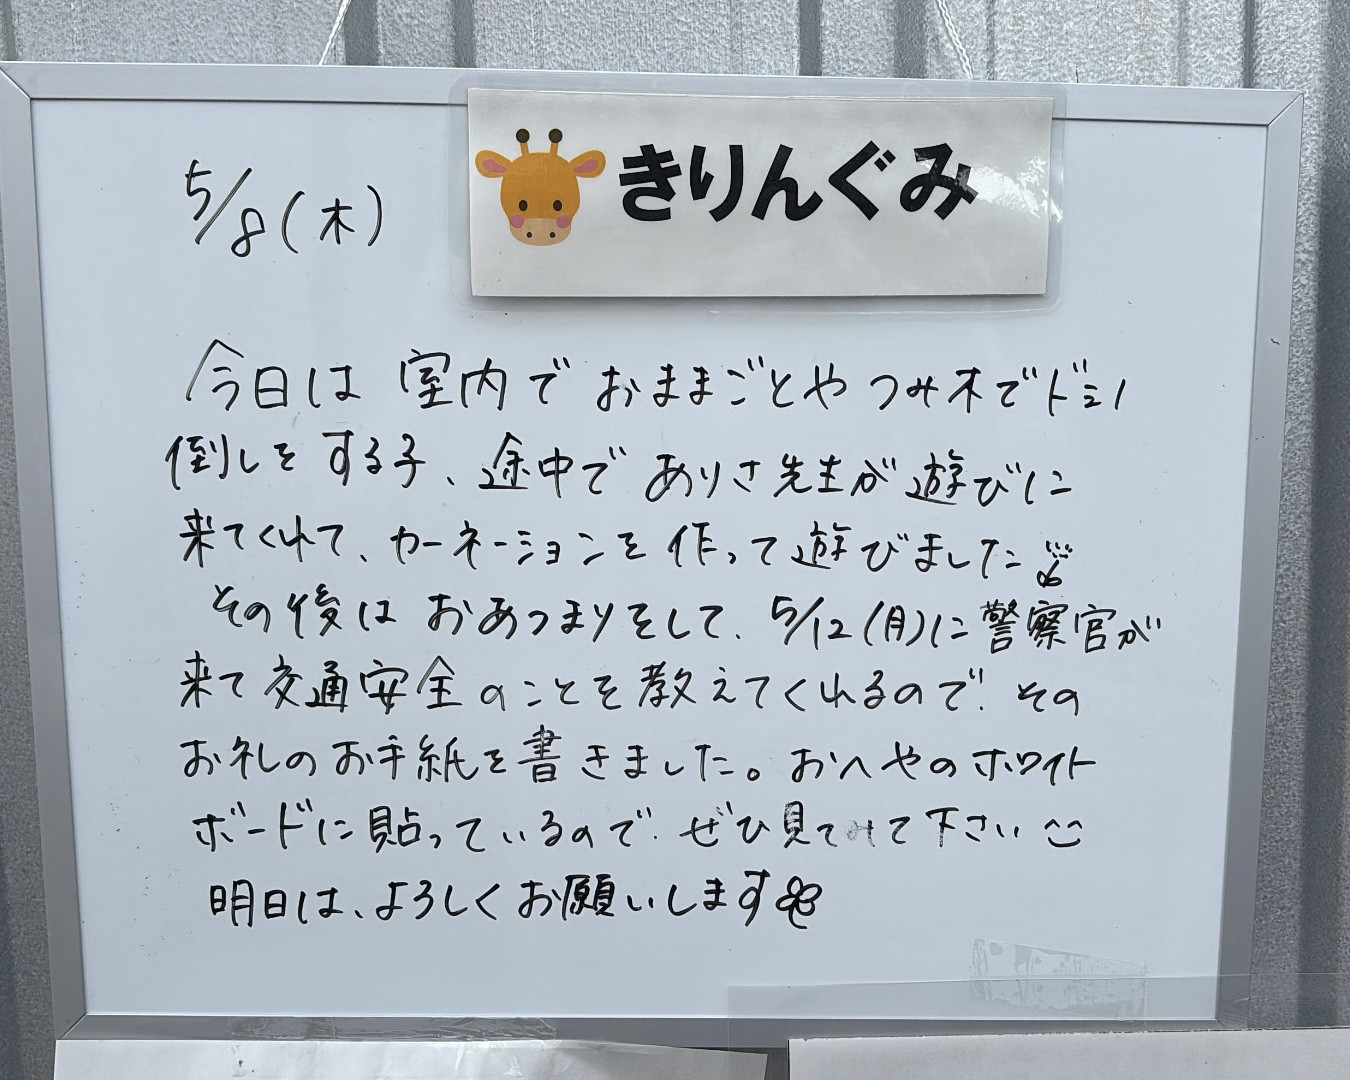 きりんぐみ
5/8(木)
今日は室内でおままごとやつみ木でドミノ
倒しをする子、途中でありさ先生が遊びに
来てくれて、カーネーションを作って遊びました
その後はおあつまりをして、5/12(月)に警察官が
来て交通安全のことを教えてくれるので、その
お礼のお手紙を書きました。おへやのホワイト
ボードに貼っているので、ぜひ見てみて下さい
明日は、よろしくお願いします